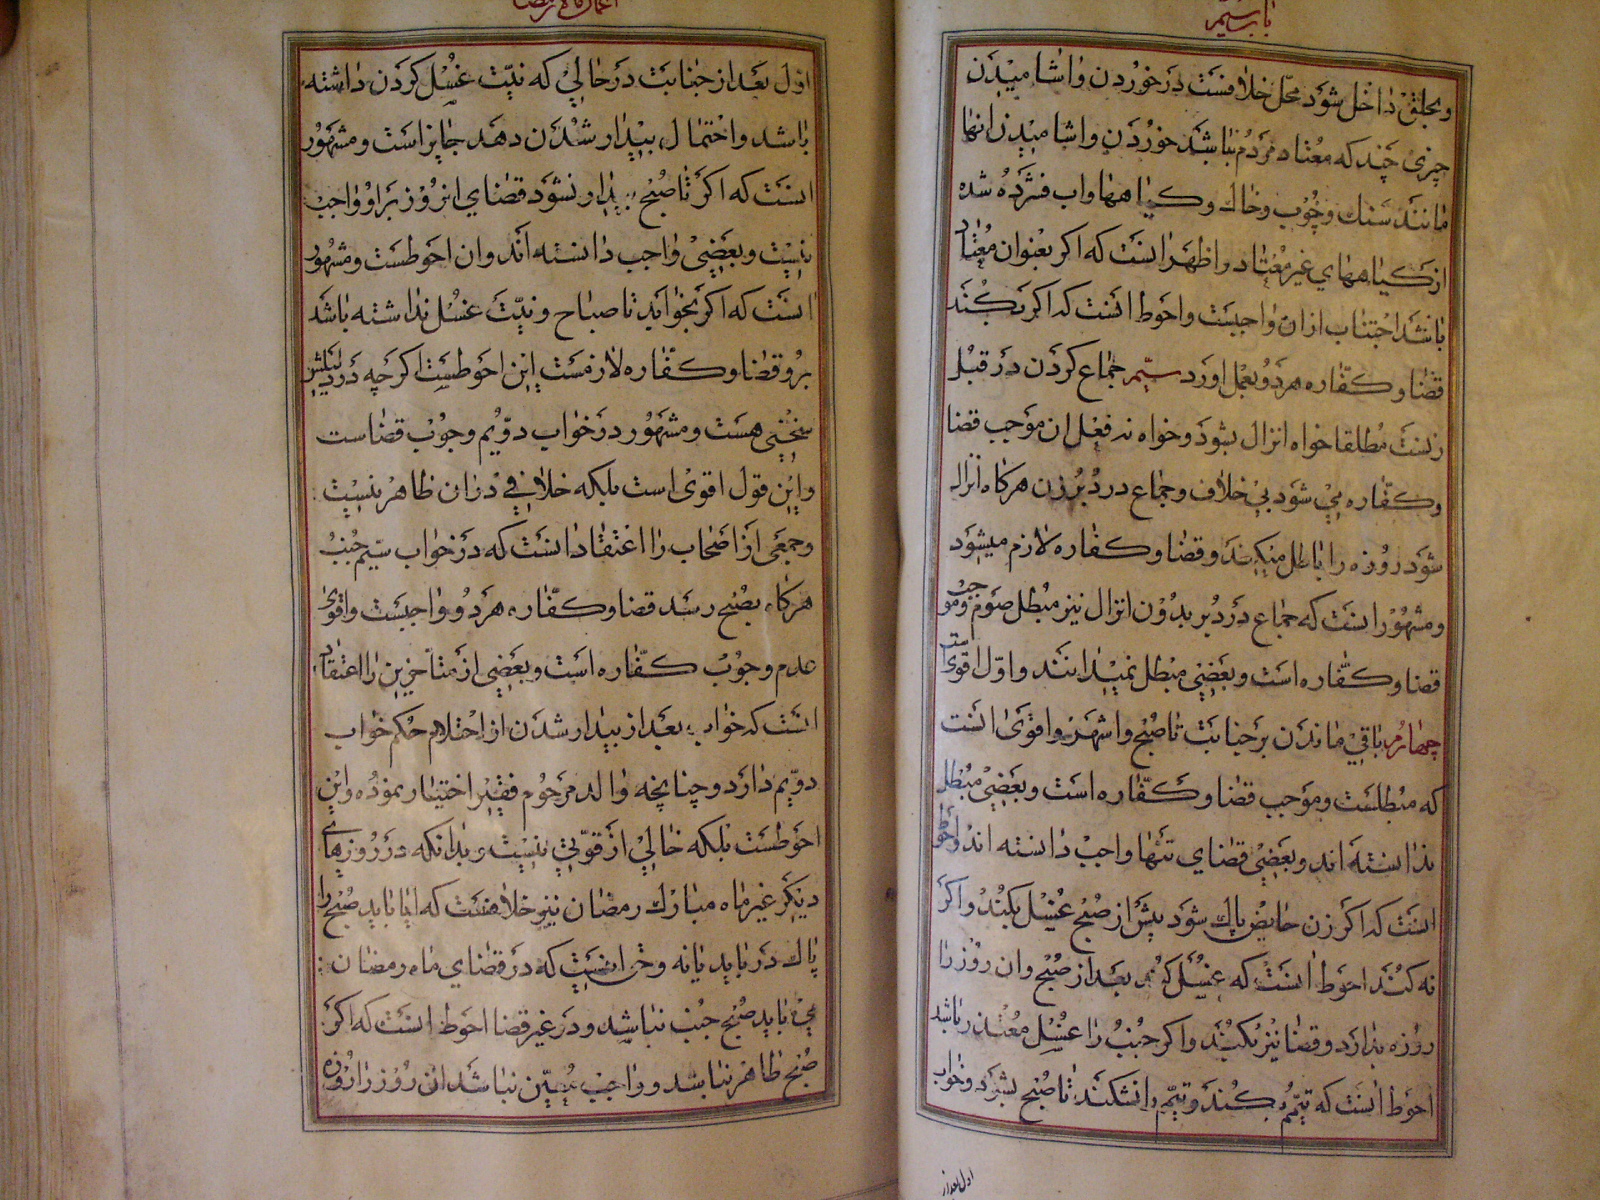 باب سیم
وبحلق داخل شود محل خلافست در خوردن واشامیدن
چیزی چند که معتاد مردم نباشد خوردن واشامیدن انها
مانند سنك وچوب وخاك وکیاهها واب فشرده شده
از کیاههای غیر معتاد واظهر انست که اکر بعنوان معتاد
باشد اجتناب ازان واجبست واحوط انست که اکر بکند
قضا وکفاره هردو بعمل اورد سیم جماع کردن در قبل
زنست مطلقا خواه انزال بشود وخواه نه فعل ان موجب قضا
وکفاره می شود بی خلاف وجماع در دبر زن هرکاه انزال
شود روزه را باطل میکند وقضا وکفاره لازم میشود
ومشهور انست که جماع در دبر بدون انزال نیز مبطل صوم وموجب
قضا وکفاره است وبعضی مبطل نمیدانند واول اقوی است
چهارم باقی ماندن بر جنابت تا صبح واشهر واقوی انست
که مبطلست وموجب قضا وکفاره است وبعضی مبطل
ندانسته اند وبعضی قضای تنها واجب دانسته اند واحوط
انست که اکر زن حایض پاك شود پیش از صبح غسل بکند واکر
نه کند احوط انست که غسل کند بعد از صبح وان روز را
روزه بدارد وقضا نیز بکند واکر جنب را غسل متعذر باشد
احوط انست که تیمم بکند وتیمم را نشکند تا صبح بشود وخواب
اول بعد از
اعمال ماه رمضان
اول بعد از جنابت در حالی که نیت غسل کردن داشته
باشد واحتمال بیدار شدن دهد جایز است ومشهور
انست که اکر تا صبح بیدار نشود قضای انروز بر او واجب
نیست وبعضی واجب دانسته اند وان احوطست ومشهور
انست که اکر بخوابد تا صباح ونیت غسل نداشته باشد
برو قضا وکفاره لازمست این احوطست اکرچه در دلیلش
سخنی هست ومشهور در خواب دویم وجوب قضاست
واین قول اقوی است بلکه خلافی دران ظاهر نیست
وجمعی از اصحاب را اعتقاد انست که در خواب سیم جنب
هرکاه بصبح رسد قضا وکفاره هردو واجبست واقوی
عدم وجوب کفاره است وبعضی از متاخرین را اعتقاد
انست که خواب بعد از بیدار شدن از احتلام حکم خواب
دویم دارد وچنانچه والد مرحوم فقیر اختیار نموده واین
احوطست بلکه خالی از قوتی نیست وبدانکه در روزهای
دیکر غیر ماه مبارك رمضان نیز خلافست که ایا باید صبح را
پاك دریابد یا نه وحق انست که در قضای ماه رمضان
می باید صبح جنب نباشد ودر غیر قضا احوط انست که اکر
صبح ظاهر نباشد وواجب معین نباشد ان روز را روزه